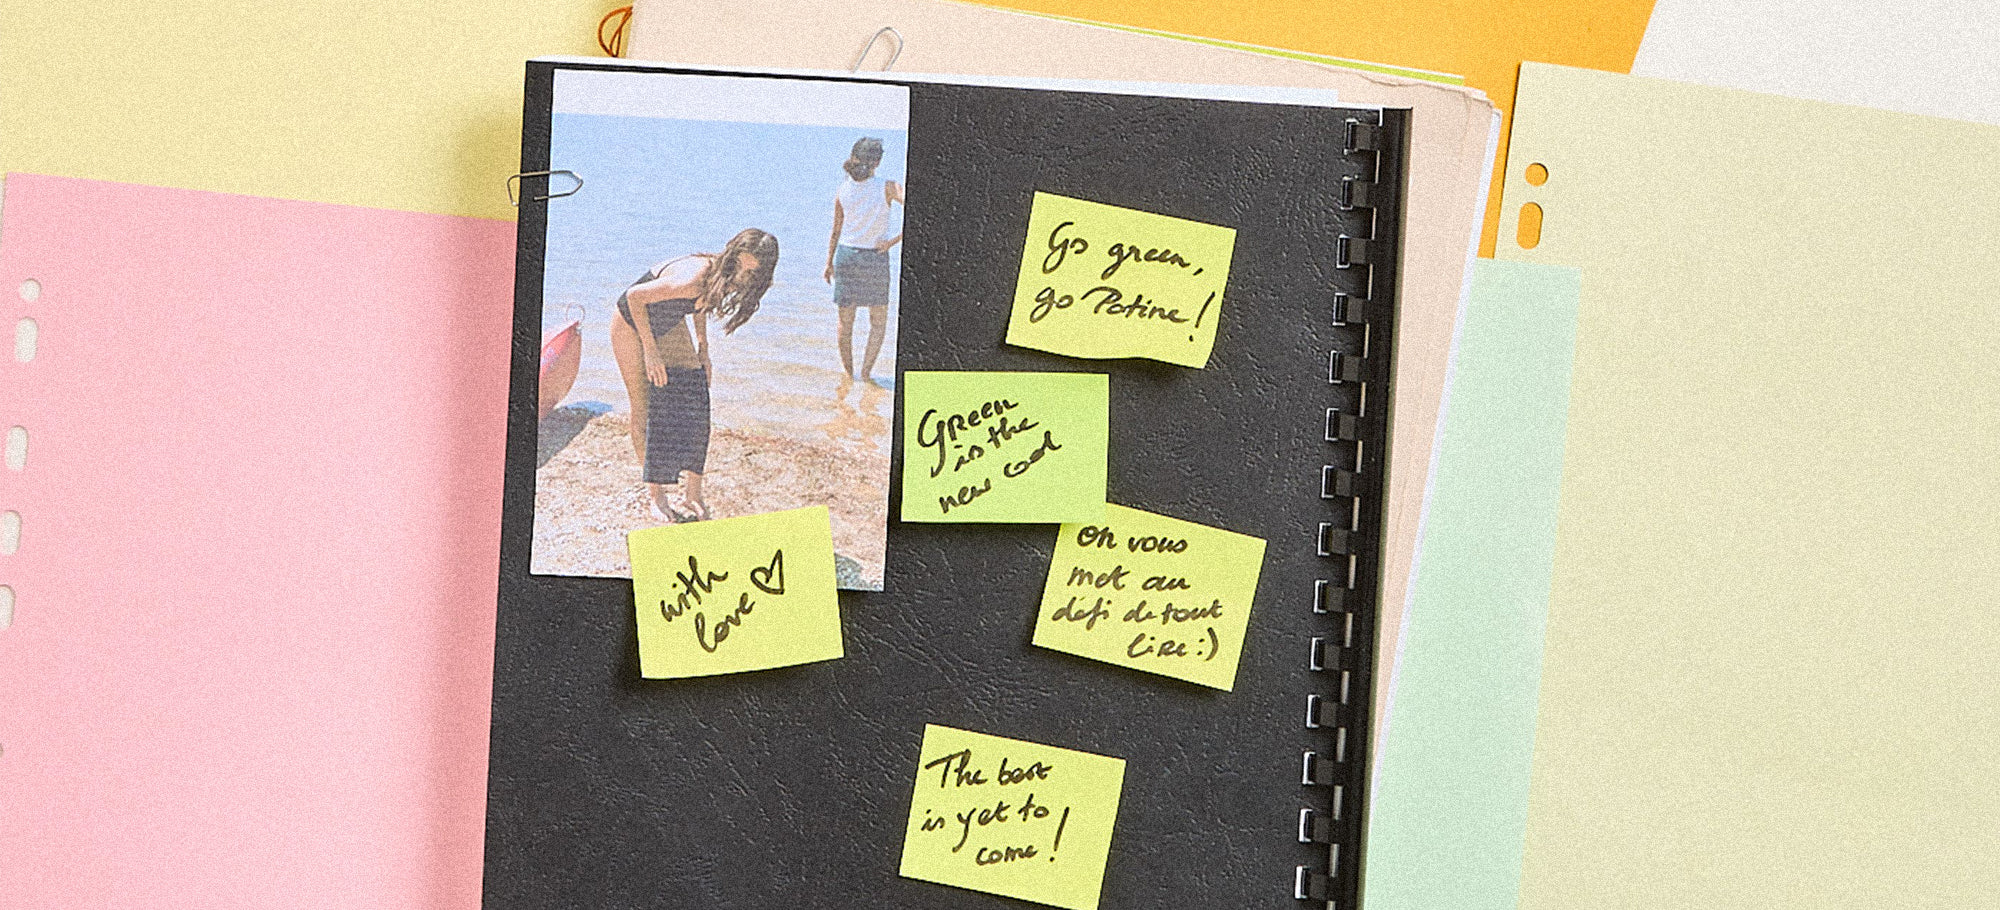 Go green,
go Patine!
Green
is the
new cool
with
love ♡
On vous
met au
défi de tout
lire :)
The best
is yet to
come!